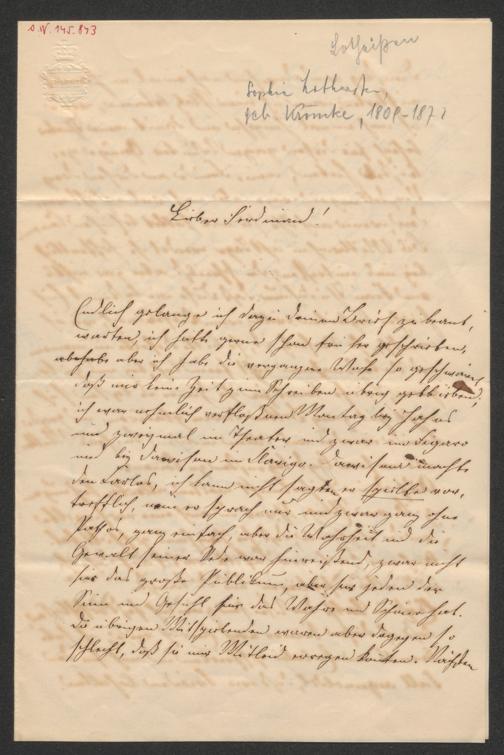 A.N. 145.843
Lotheißen
Sophie Lotheißen,
geb. Kröncke, 1809-187
Lieber Ferdinand!
Endlich gelange ich dazu deinen Brief zu beant,
worten, ich hätte gerne schon früher geschrieben,
aber ich habe die vergangne Woche so geschwärmt
daß mir keine Zeit zum Schreiben übrig geblieben;
ich war nehmlich verfloßnen Montag bey
und zweymal im Theater und zwar im Figaro
und bey Dawison im Clavigo. Dawison machte
den Carlos, ich kann nicht sagen er spielte vor,
trefflich, nein er sprach nur und zwar ganz ohne
Pathos, ganz einfach, aber die Wahrheit und die
Gewalt seiner Rede war hinreißend, zwar nicht
für das große Publikum, aber für jeden der
Sinn und Gefühl für das Wahre und Schöne hat.
Die übrigen Mitspielenden waren aber dagegen so
schlecht, daß sie nur Mitleid erregen konnten.